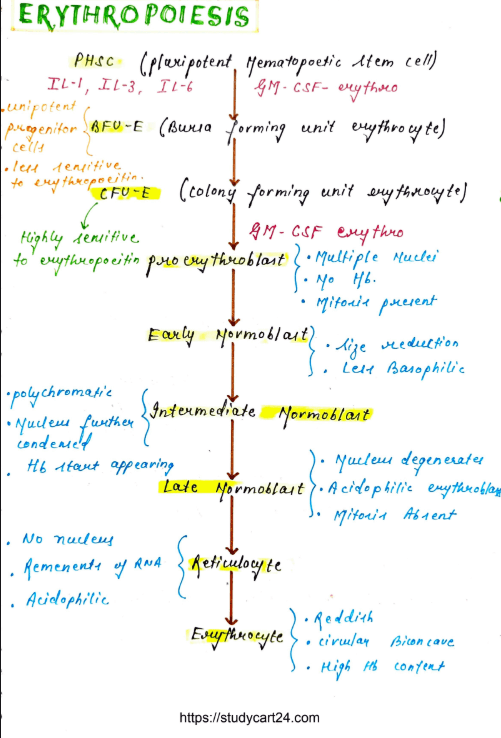 ERYTHROPOIESIS
PHSC (pluripotent Hematopoetic Stem cell)
IL-1, IL-3, IL-6
GM-CSF-erythro
• unipotent
progenitor
cells
• less sensitive
to erythropoeitin.
BFU-E (Bursa forming unit erythrocyte)
CFU-E (colony forming unit erythrocyte)
Highly sensitive
to erythropoeitin
GM-CSF erythro
pro erythroblast
• Multiple Nuclei
• No Hb.
• Mitosis present
Early Normoblast
• Size reduction
• Less Basophilic
• polychromatic
• Nucleus further
condensed
• Hb start appearing
Intermediate Normoblast
Late Normoblast
• Nucleus degenerates
• Acidophilic erythroblas
• Mitosis Absent
• No nucleus
• Remenents of RNA
• Acidophilic
Reticulocyte
Erythrocyte
• Reddish
• circular Biconcave
• High Hb content
https://studycart24.com